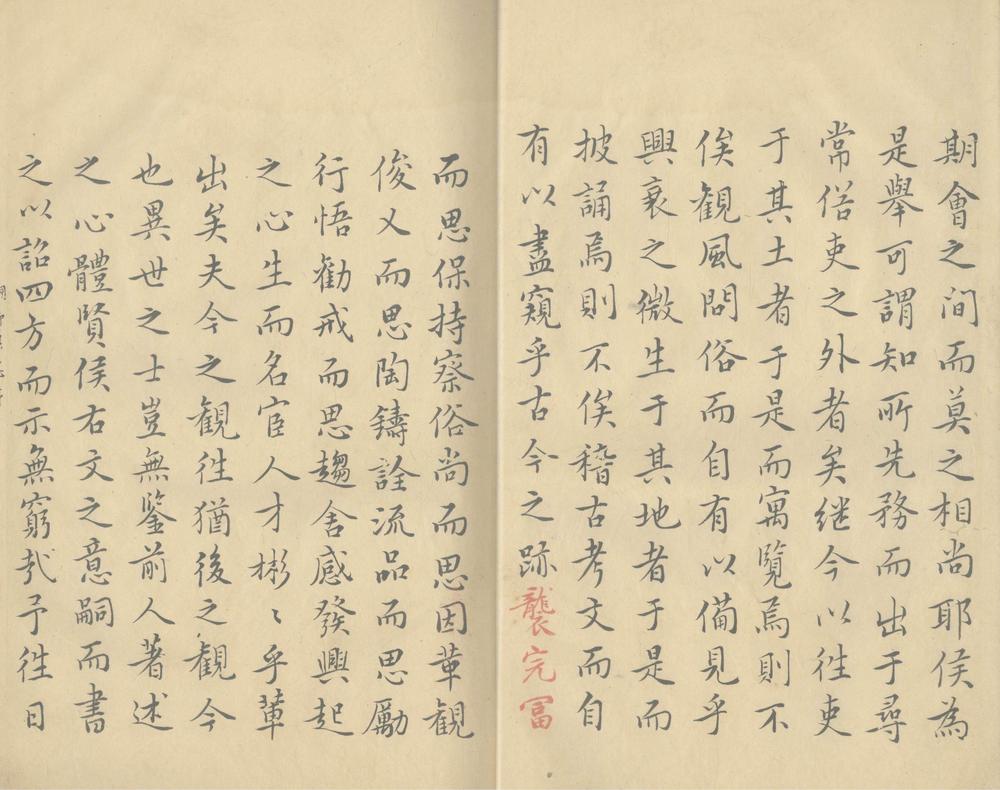 期會之间而莫之相尚耶侯為
是舉可謂知所先務而出于尋
常俗吏之外者矣继今以徃吏
于其土者于是而寓覽焉則不
俟觀風問俗而自有以備見乎
興衰之微生于其地者于是而
披誦焉則不俟稽古考文而自
有以盡窺乎古今之跡襲完冨
而思保持察俗尚而思因革観
俊乂而思陶鑄詮流品而思勵
行悟勸戒而思趨舍感發興起
之心生而名宦人才彬〻乎輩
出矣夫今之觀徃猶後之觀今
也異世之士豈無鑒前人著述
之心體賢侯右文之意嗣而書
之以詔四方而示無窮哉予徃日